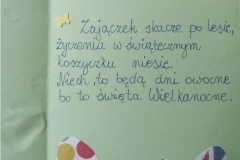 Zajączek skacze po lesie,
życzenia w świątecznym
koszyczku niesie.
Niech to będą dni owocne
bo to święta Wielkanocne.